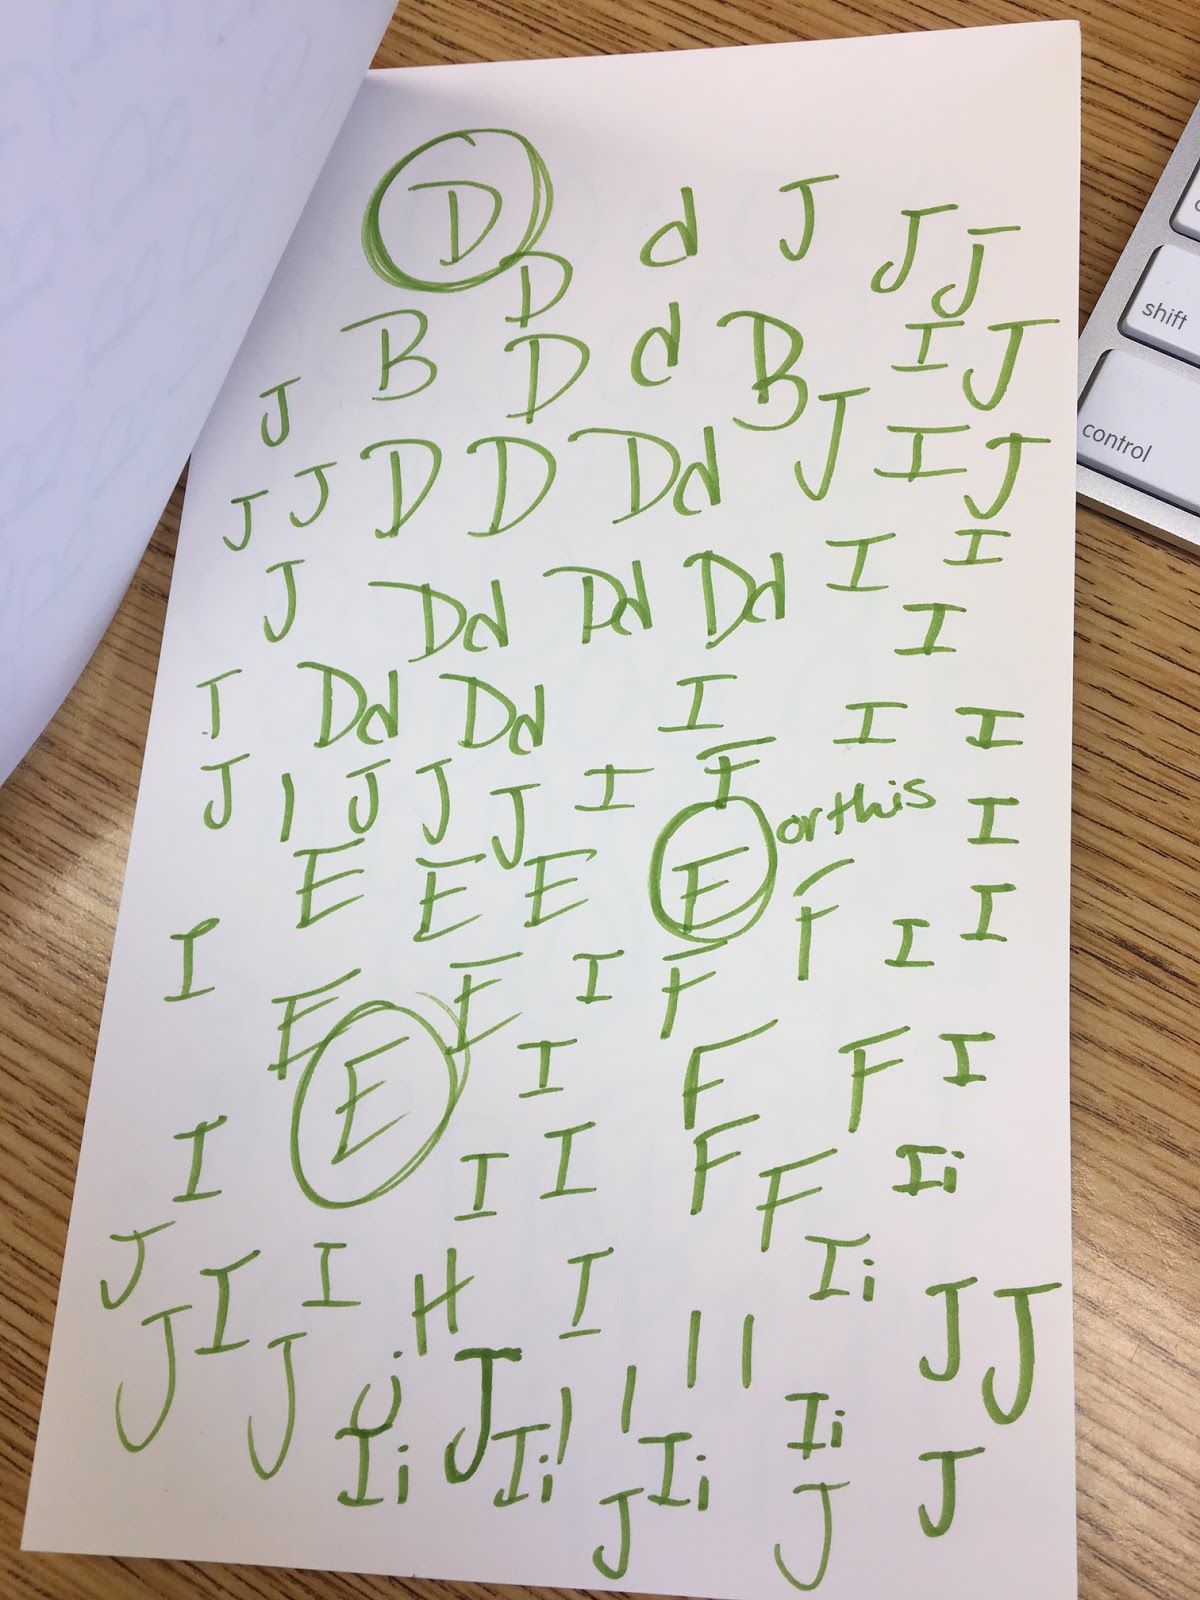 D d J J J
D
B D d B I J
J J
J J D D Dd I J
J Dd Dd Dd I I
I
J Dd Dd I I I
J I J J J I F
or this I
E E E E F I I
I E E I F
E I F F I
I I I F F Ii
J I I H I Ii J J
J J j J l l l l Ii
Ii Ii Ii J
J J
shift
control